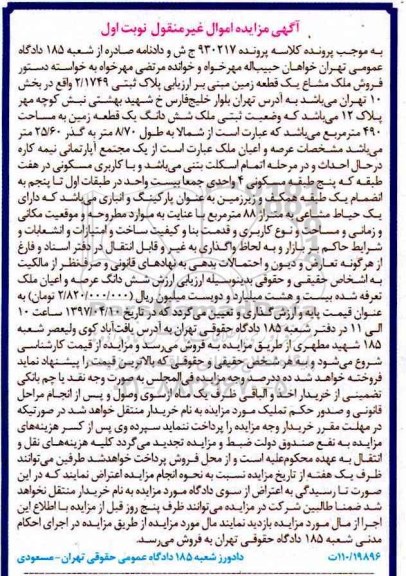 آگهی مزایده اموال غیرمنقول نوبت اول
به موجب پرونده کلاسه پرونده ۹۳۰۲۱۷ ج ش و دادنامه صادره از شعبه ۱۸۵ دادگاه
عمومی تهران خواهان حبیب‌اله مهرخواه و خوانده مرتضی مهرخواه به خواسته دستور
فروش ملک مشاع یک قطعه زمین مبنی بر ارزیابی پلاک ثبتی ۲/۱۷۴۹ واقع در بخش
۱۰ تهران می‌باشد به آدرس تهران بلوار خلیج‌فارس خ شهید بهشتی نبش کوچه مهر
پلاک ۱۲ می‌باشد که وضعیت ثبتی ملک شش دانگ یک قطعه زمین به مساحت
۴۹۰ مترمربع می‌باشد که عبارت است از شمالا به طول ۸/۷۰ متر به گذر ۲۵/۶۰ متر
می‌باشد مشخصات عرصه و اعیان ملک عبارت است از یک مجتمع آپارتمانی نیمه کاره
درحال احداث و در مرحله اتمام اسکلت بتنی می‌باشد و با کاربری مسکونی در هفت
طبقه که پنج طبقه مسکونی ۴ واحدی جمعا بیست واحد در طبقات اول تا پنجم به
انضمام یک طبقه همکف و زیرزمین به عنوان پارکینگ و انباری می‌باشد که دارای
یک حیاط مشاعی به متراژ ۸۸ مترمربع با عنایت به موارد مطروحه و موقعیت مکانی
و زمانی و مساحت و نوع کاربری و قدمت بنا و کیفیت ساخت و امتیازات و انشعابات و
شرایط حاکم بر بازار و به لحاظ واگذاری به غیر و قابل انتقال در دفتر اسناد و فارغ
از هرگونه تعارض و دیون و احتمالات بدهی به نهادهای قانونی و صرفنظر از مالکیت
به اشخاص حقیقی و حقوقی بدینوسیله ارزیابی ارزش شش دانگ عرصه و اعیان ملک
تعرفه شده بیست و هشت میلیارد و دویست میلیون ریال (۲/۸۲۰/۰۰۰/۰۰۰ تومان) به
عنوان قیمت پایه و ارزش‌گذاری و تعیین می‌گردد که در تاریخ ۱۳۹۷/۰۴/۱۰ ساعت ۱۰
الی ۱۱ در دفتر شعبه ۱۸۵ دادگاه حقوقی تهران به آدرس یافت‌آباد کوی ولیعصر شعبه
۱۸۵ شهید مطهری از طریق مزایده به فروش می‌رسد و مزایده از قیمت کارشناسی
شروع می‌شود و به هر شخص حقیقی و حقوقی که بالاترین قیمت را پیشنهاد نماید
فروخته خواهد شد ده درصد وجه مزایده فی‌المجلس به صورت وجه نقد یا چم بانکی
تضمینی از خریدار اخذ و الباقی ظرف یک ماه از سوی وصول و پس از انجام مراحل
قانونی و صدور حکم تملیک مورد مزایده به نام خریدار منتقل خواهد شد در صورتیکه
در مهلت مقرر خریدار وجه مزایده را پرداخت ننماید سپرده وی پس از کسر هزینه‌های
مزایده به نفع صندوق دولت ضبط و مزایده تجدید می‌گردد کلیه هزینه‌های نقل و
انتقال به عهده محکوم‌علیه است و از محل فروش پرداخت خواهدشد طرفین می‌توانند
ظرف یک هفته از تاریخ مزایده نسبت به نحوه انجام مزایده اعتراض نمایند که در این
صورت تا رسیدگی به اعتراض از سوی دادگاه مورد مزایده به نام خریدار منتقل نخواهد
شد ضمنا طالبین شرکت در مزایده می‌توانند ظرف پنج روز قبل از مزایده با اطلاع این
اجرا از مال مورد مزایده بازدید نمایند مال مورد مزایده از طریق مزایده در اجرای احکام
مدنی شعبه ۱۸۵ دادگاه حقوقی تهران به فروش می‌رسد.
۱۱۰/۱۹۸۹۶ت دادورز شعبه ۱۸۵ دادگاه عمومی حقوقی تهران - مسعودی